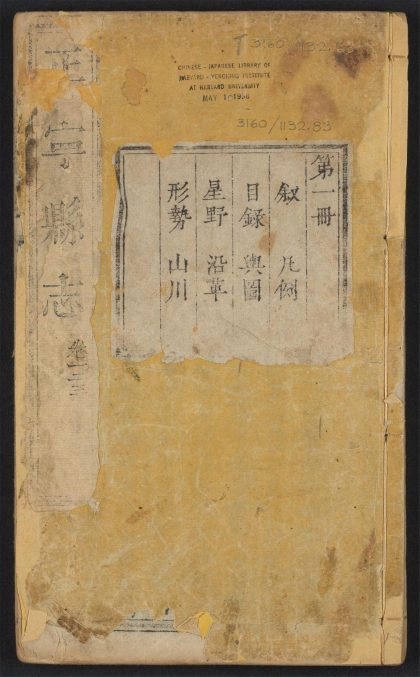 T 3160/1132.83
CHINESE - JAPANESE LIBRARY OF
HARVARD - YENCHING INSTITUTE
AT HARVARD UNIVERSITY
MAY 1 1956
3160/1132.83
第一冊
敘 凡例
目錄 輿圖
星野 沿革
形勢 山川
正寧縣志
卷一二三